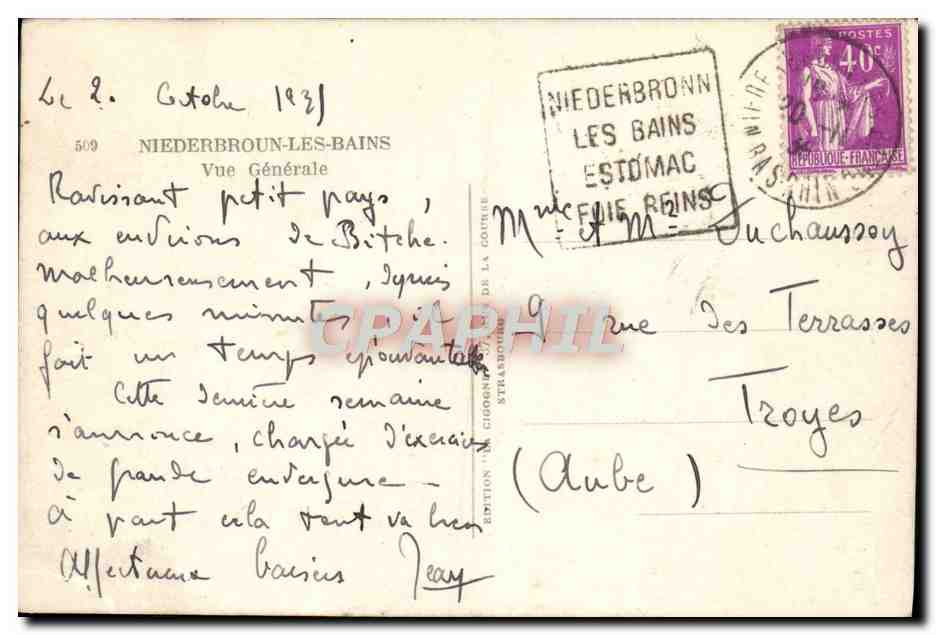 Le 2. Octobre 1935
509 NIEDERBROUN-LES-BAINS
Vue Générale
Ravissant petit pays,
aux environs de Bitche.
Malheureusement, depuis
quelques minutes, il
fait un temps épouvantable
Cette dernière semaine
s'annonce, chargée d'exercices
de grande envergure -
à part cela tout va bien
Affectueux baisers Jean
EDITION "LA CIGOGNE" 37, RUE DE LA COURSE
STRASBOURG
NIEDERBRONN
LES BAINS
ESTOMAC
FOIE REINS
POSTES
40c
REPUBLIQUE-FRANÇAISE
BAS-RHIN
Mr et Mme Duchaussoy
9 rue des Terrasses
Troyes
(Aube)
CPAPHIL